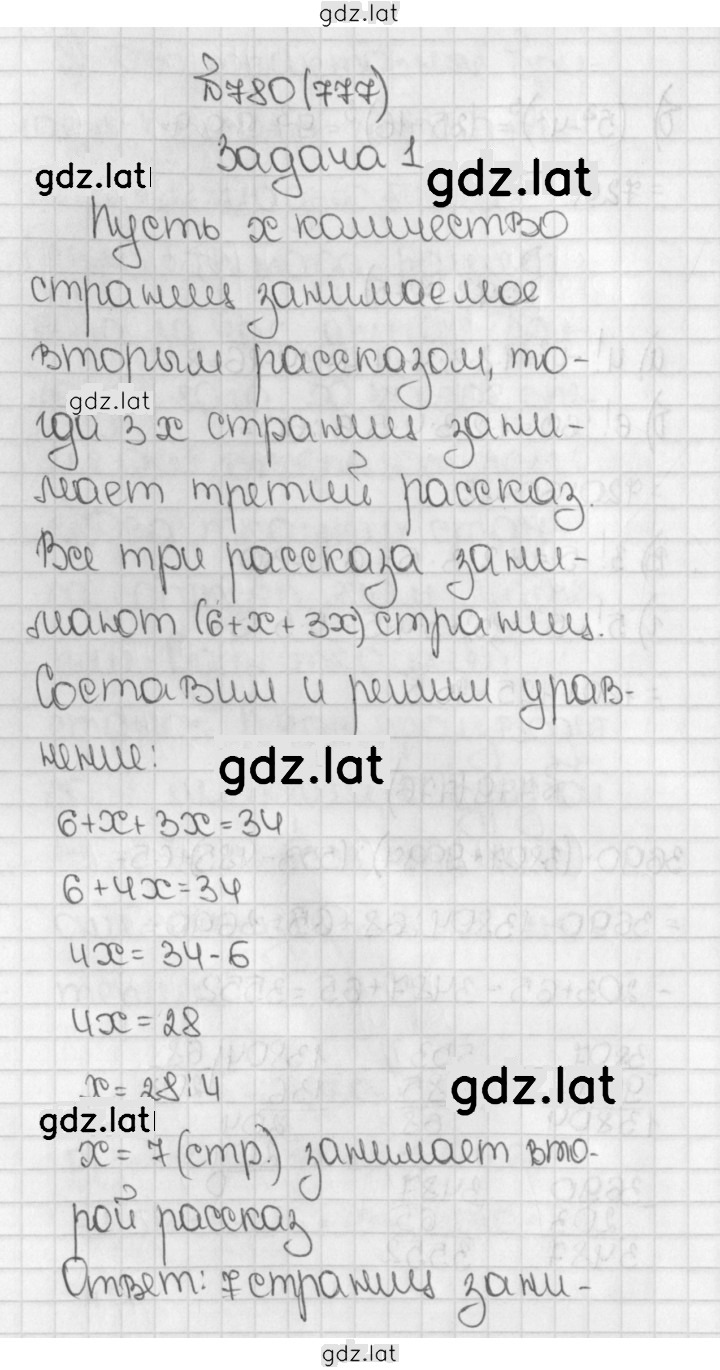 gdz.lat
№780(777)
Задача 1
gdz.lat
gdz.lat
Пусть x количество
страниц занимаемое
вторым рассказом, то-
gdz.lat
гда 3x страниц зани-
мает третий рассказ.
Все три рассказа зани-
мают (6+x+3x) страниц.
Составим и решим урав-
нение:
gdz.lat
6+x+3x=34
6+4x=34
4x=34-6
4x=28
x=28:4
gdz.lat
gdz.lat
x=7(стр.) занимает вто-
рой рассказ
Ответ: 7 страниц зани-
gdz.lat